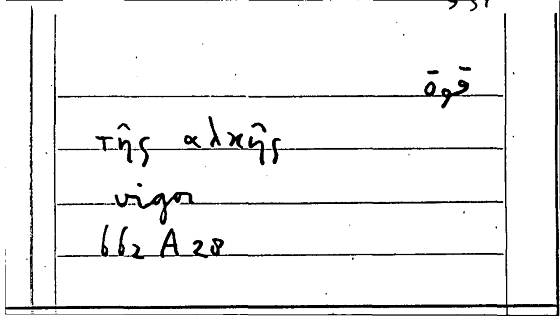 قوة
τῆς αλκῆς
vigor
662 A 28